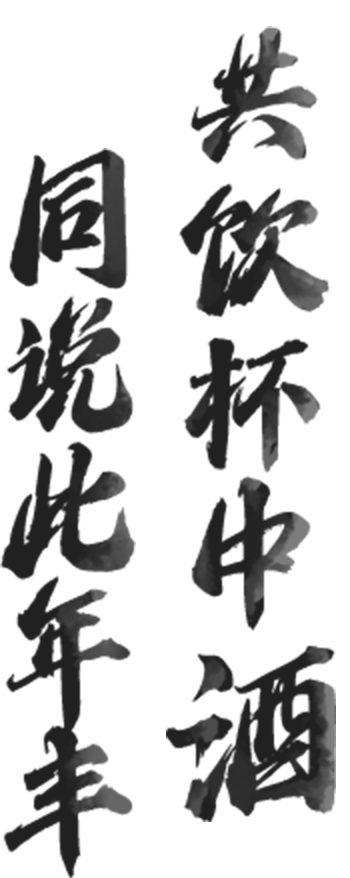 共饮杯中酒
同说此年丰